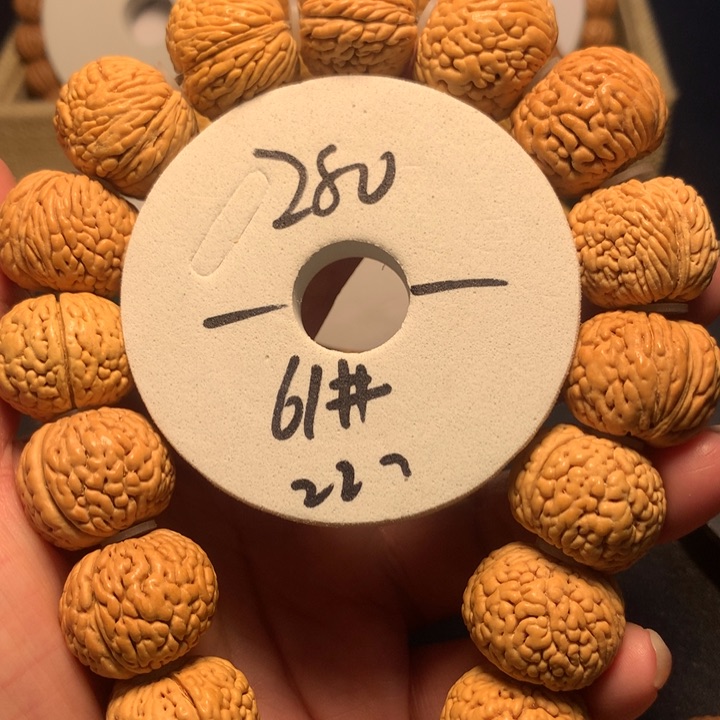 280
61#
227